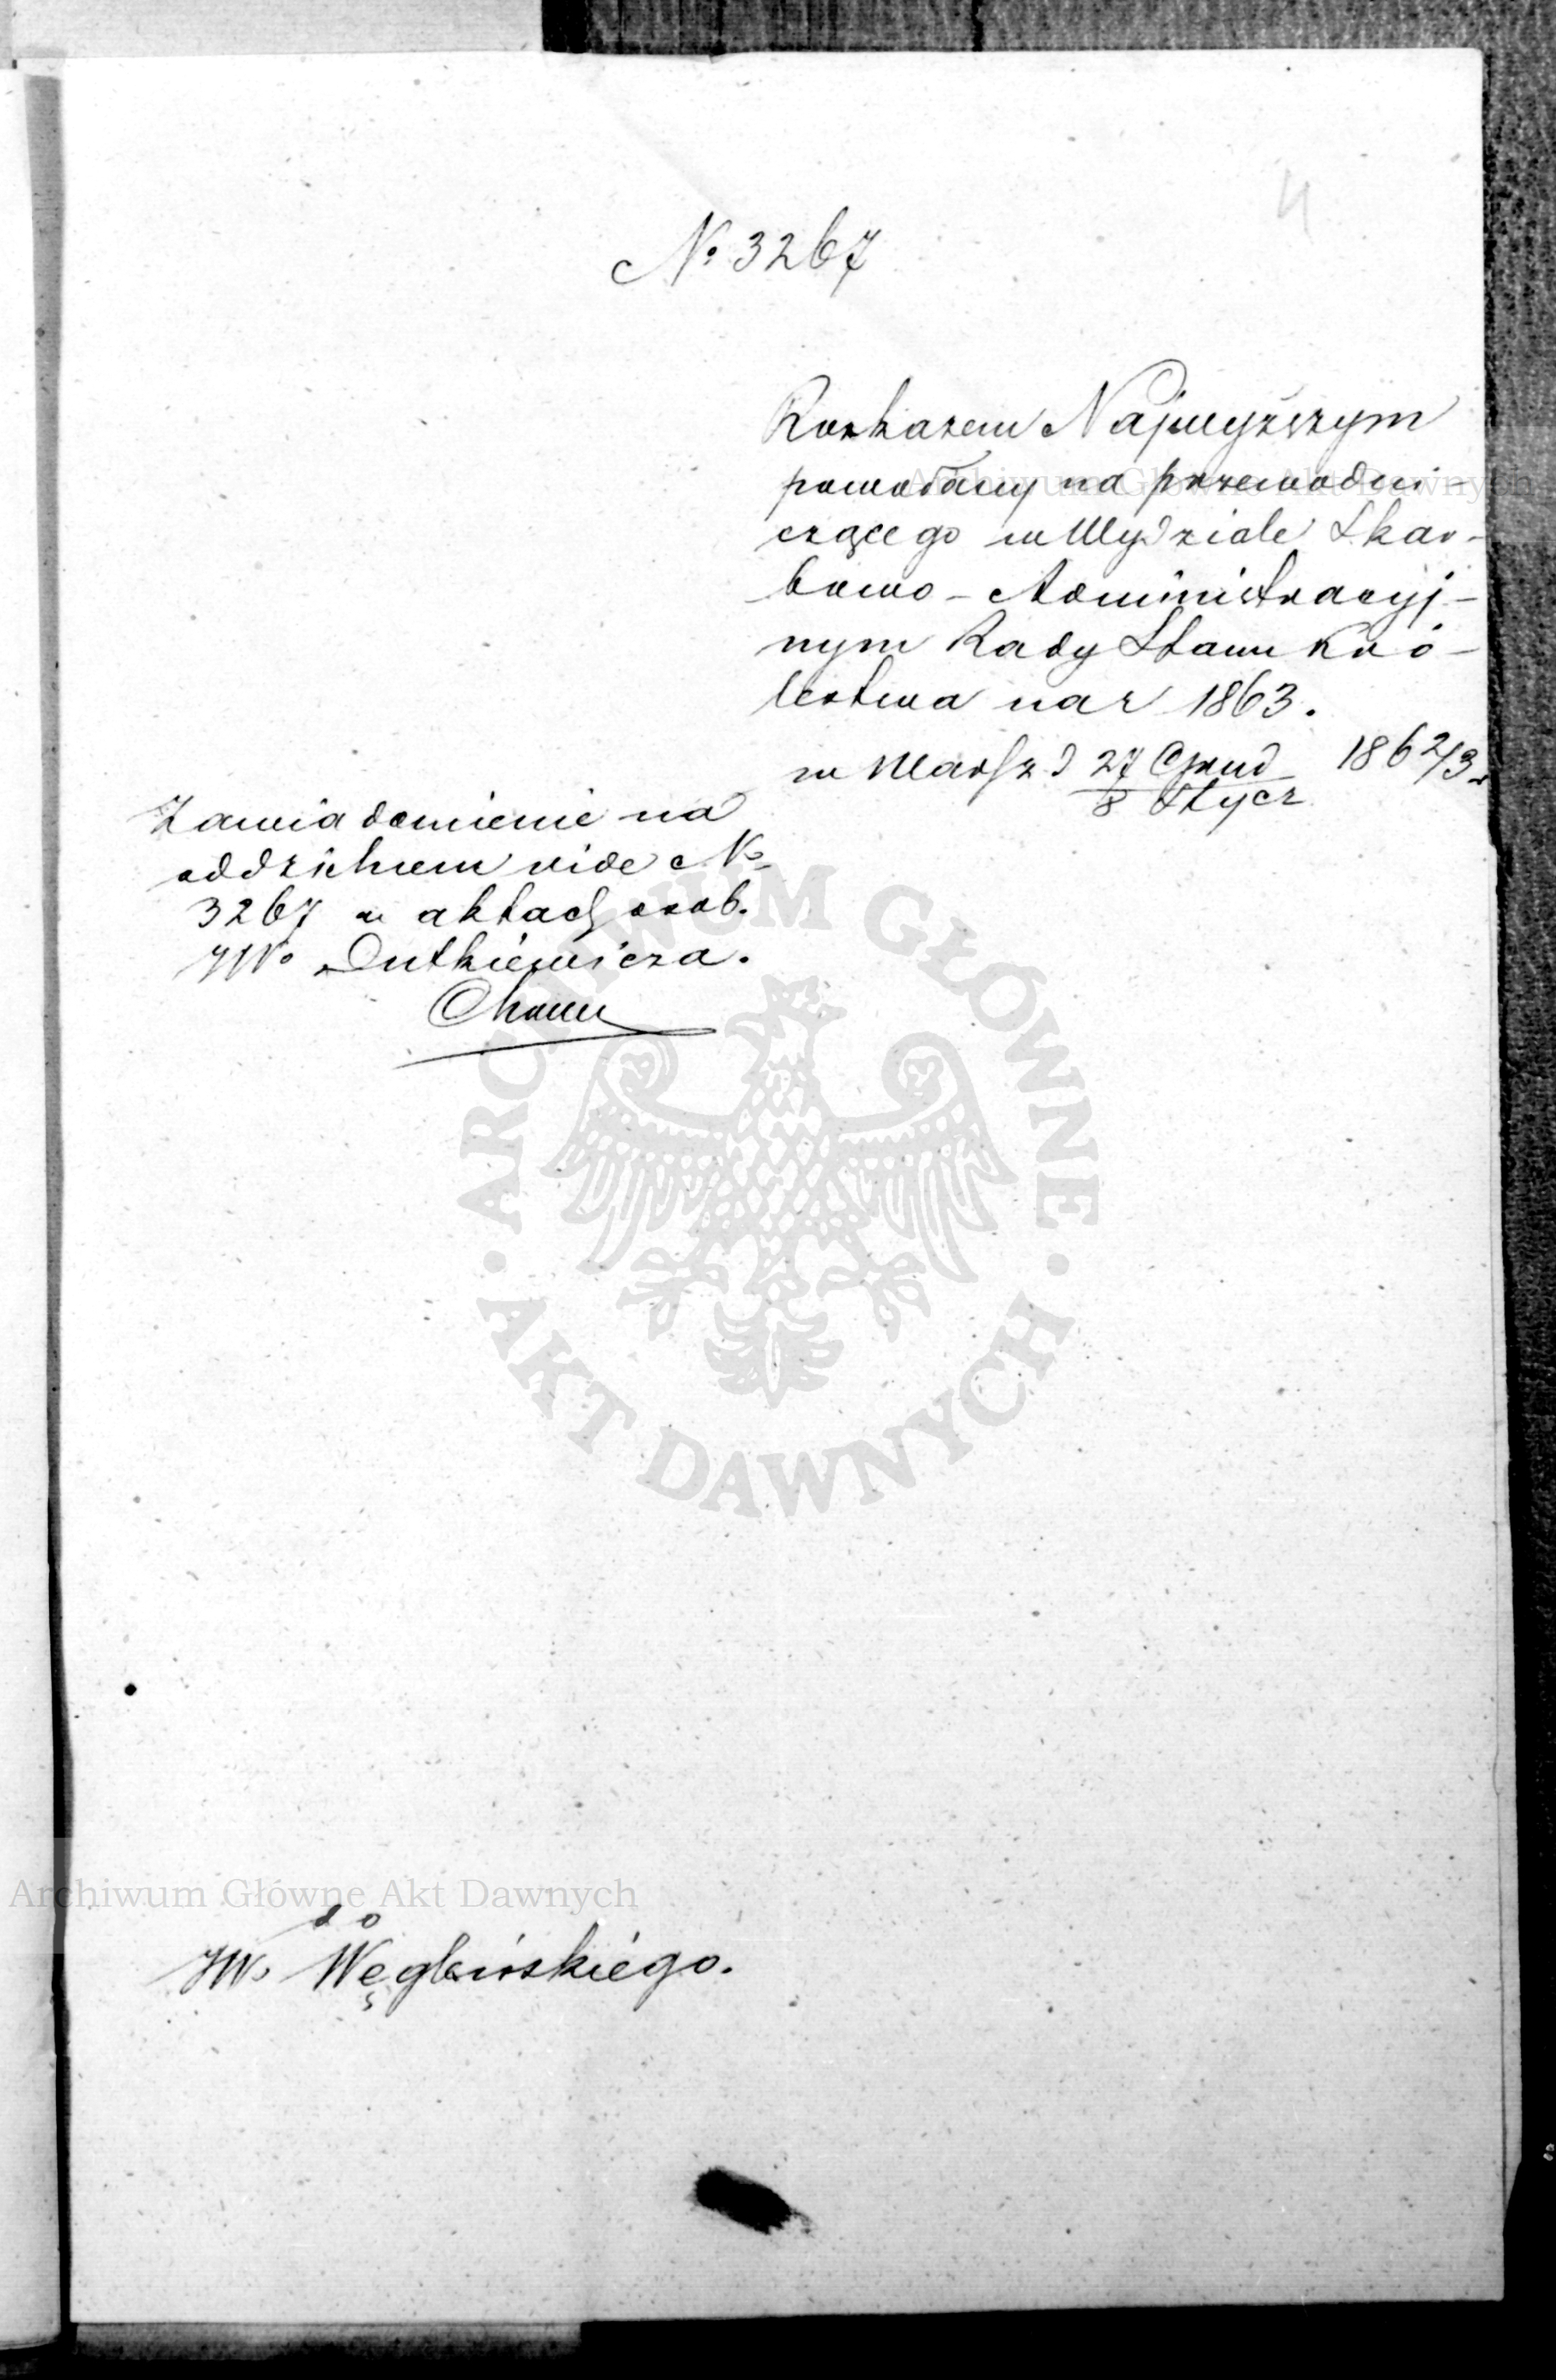 4
№ 3267
Rozkazem Najwyższym
powołany na przewodni-
czącego w Wydziale Skar-
bowo-Administracyj-
nym Rady Stanu Kró-
lestwa na r 1863.
w Warsz d 27 Grud 1862/3
8 Stycz
Zawiadomienie na
oddzielnem vide №
3267 w aktach osob.
JW. Dutkiewicza.
do
JW. Węgleńskiego.
Archiwum Główne Akt Dawnych
ARCHIWUM GŁÓWNE
· AKT DAWNYCH ·
Archiwum Główne Akt Dawnych